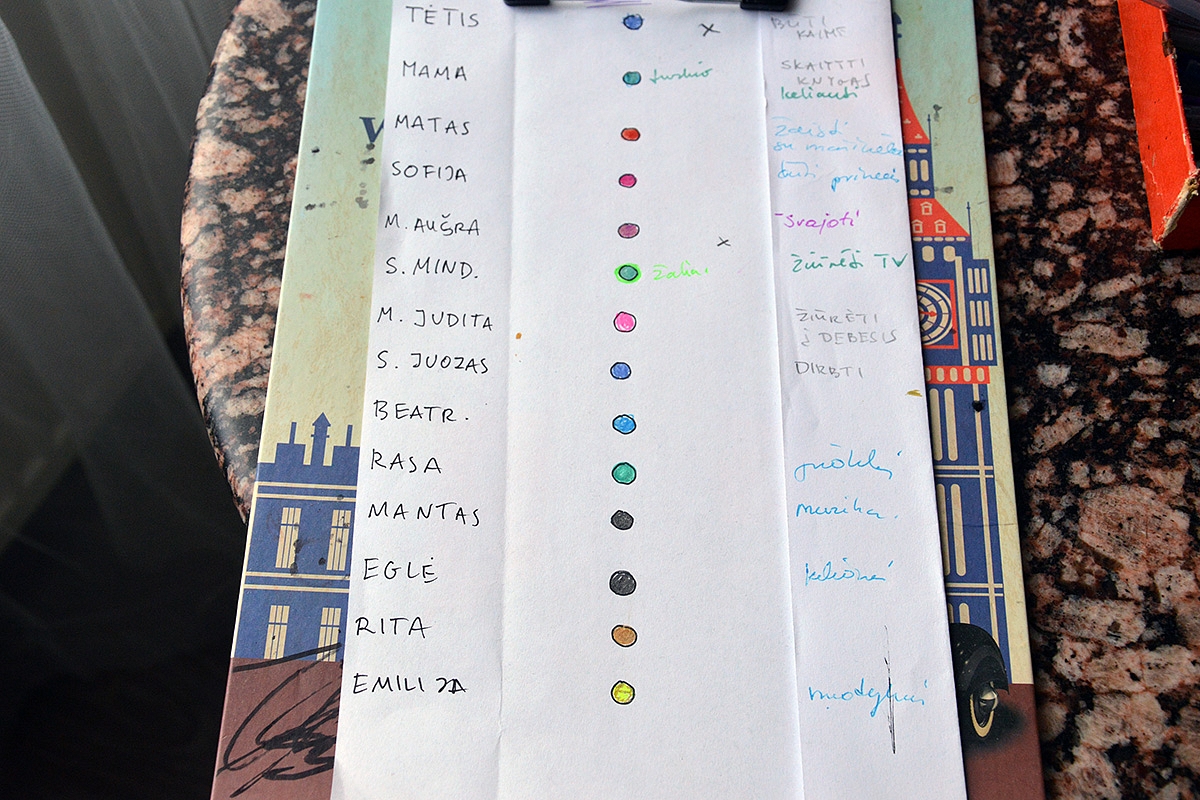 TĖTIS x BŪTI
KAIME
MAMA SKAITYTI
KNYGAS
keliauti
MATAS žaisti
su mašinėle
SOFIJA būti
M. AUŠRA x svajoti
S. MIND. žalia. žiūrėti TV
M. JUDITA ŽIŪRĖTI
Į DEBESIS
S. JUOZAS DIRBTI
BEATR.
RASA
MANTAS muzika.
EGLĖ kelionės
RITA
EMILIJA